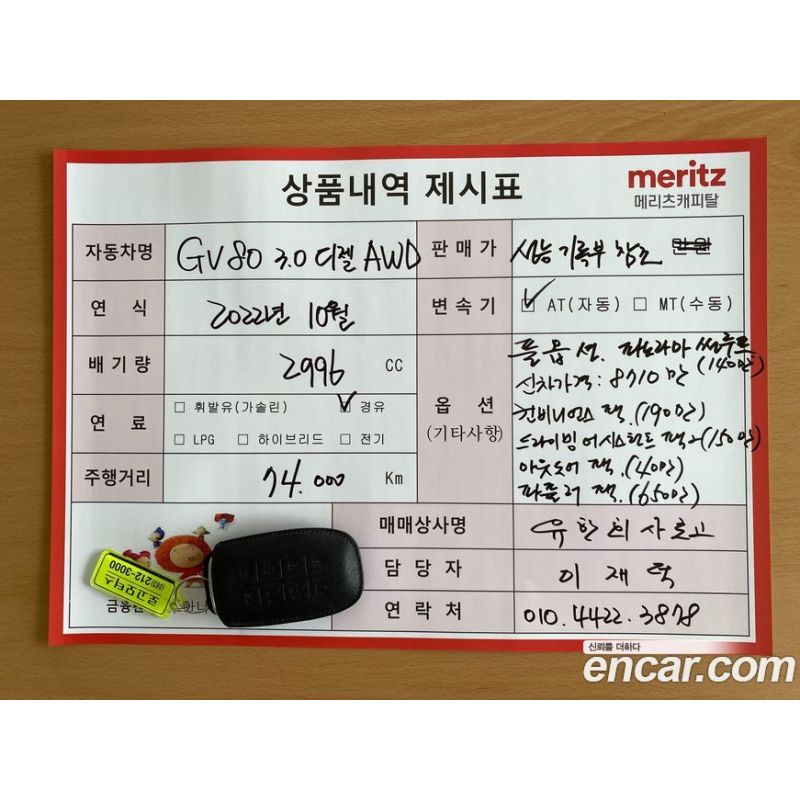 상품내역 제시표
meritz
메리츠캐피탈
자동차명 GV80 3.0 디젤 AWD 판매가 성능기록부 참조 만원
연 식 2022년 10월 변속기 ☑ AT(자동) □ MT(수동)
배기량 2996 CC
연 료 □ 휘발유(가솔린) ☑ 경유
□ LPG □ 하이브리드 □ 전기
주행거리 74.000 Km
옵 션
(기타사항)
풀옵션. 파노라마 썬루프
(140만)
신차가격: 8710만
컨비니언스 팩.(190만)
드라이빙 어시스턴트 팩2(150만)
아웃도어 팩.(40만)
파퓰러 팩.(650만)
매매상사명 유한회사로고
담당자 이재혁
연락처 010.4422.3878
로고모터스
(063)212-3000
금융
신뢰를 더하다
encar.com